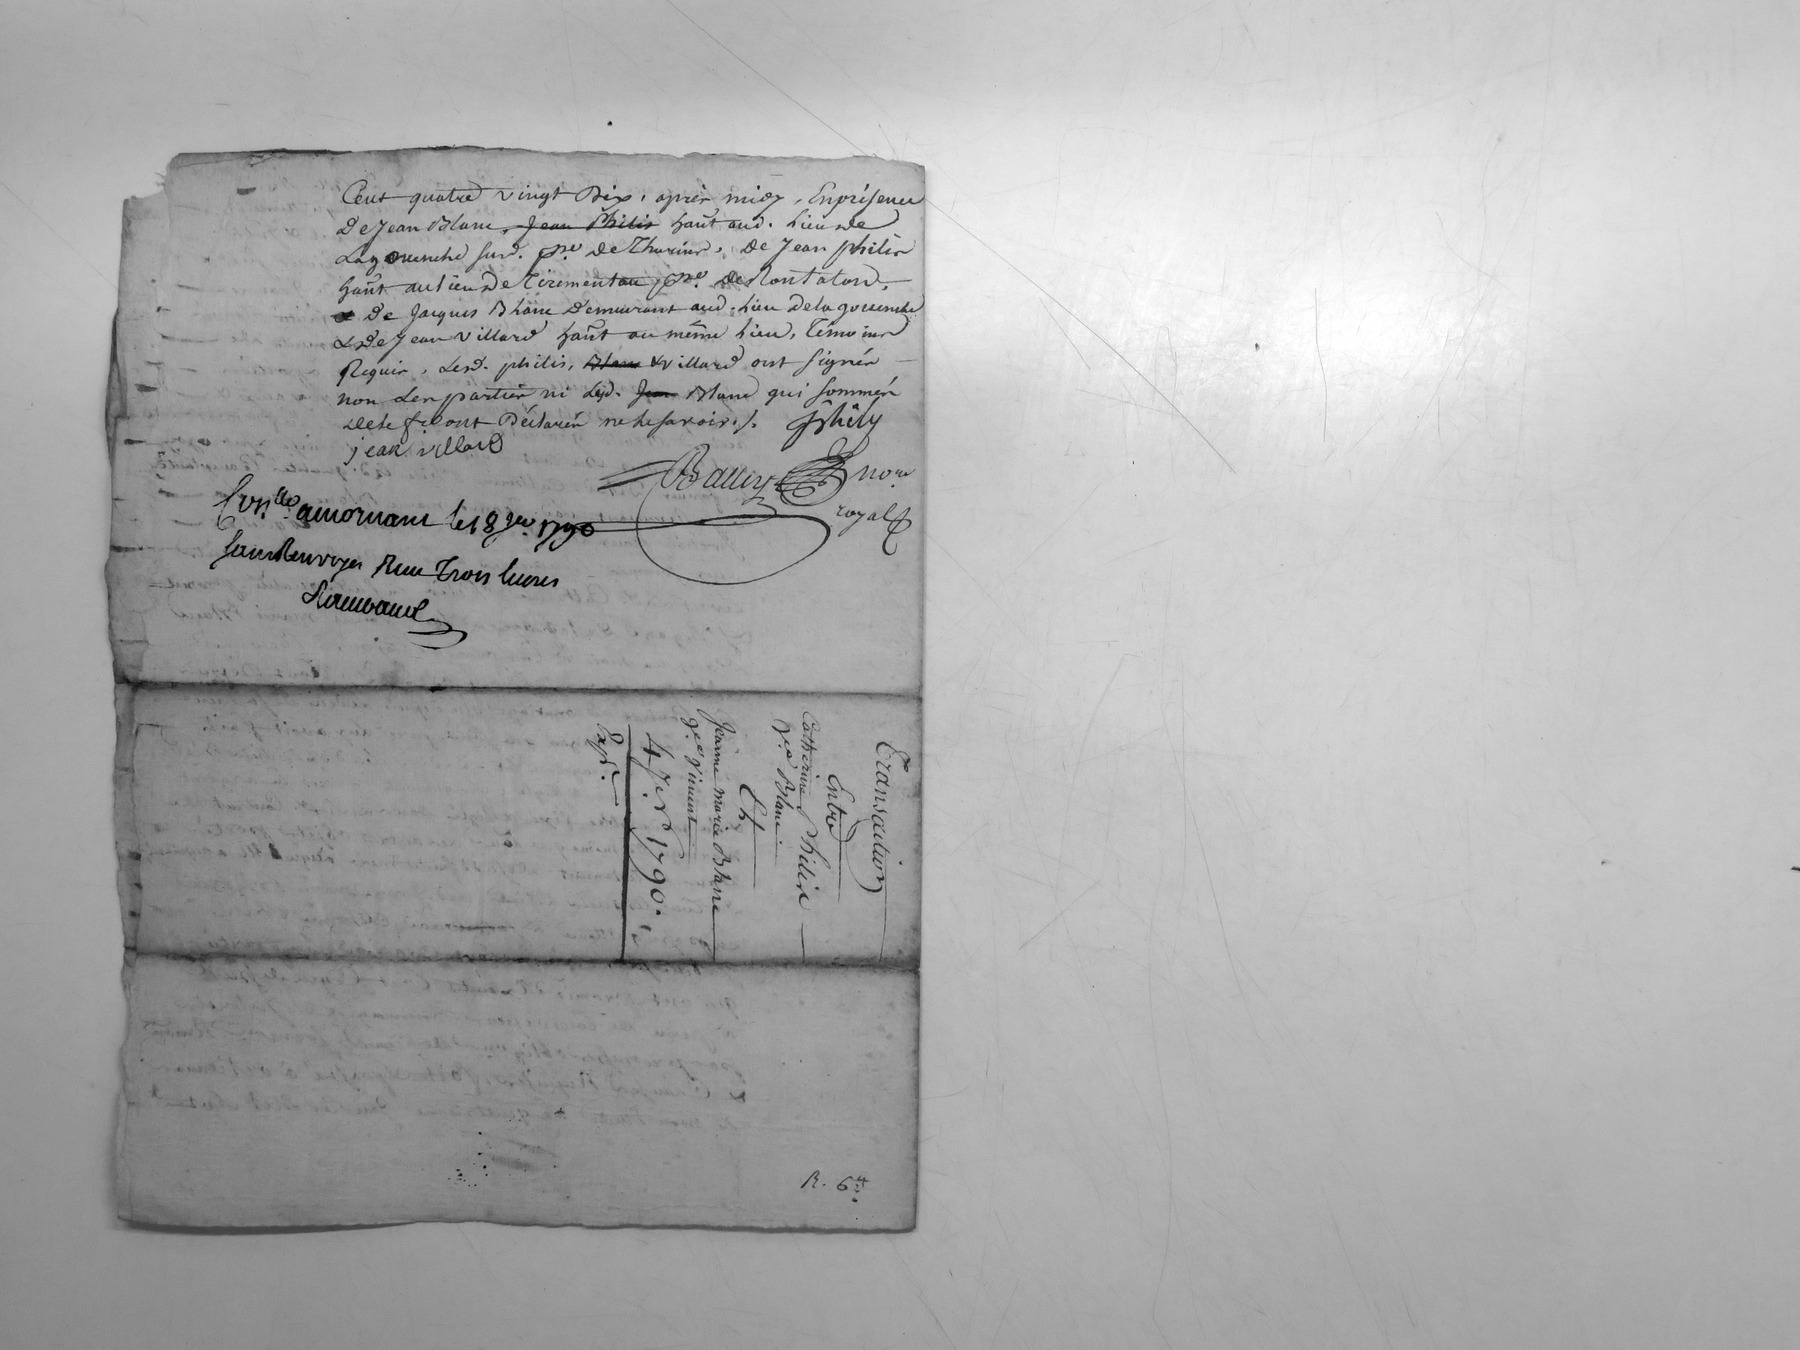 Cent quatre vingt Dix, après midy, En présence
De Jean Blanc, Jean Philis hañt aud. Lieu de
Lagouenche susd. psse de Thurins, De Jean philis
hañt au lieu de psse de Rontalon,
& De Jacques Blanc Demeurant aud. Lieu de la gouenche
& De Jean Villard hañt au même Lieu, Témoins
Requis, Lesd. philis, Blanc & Villard ont signés
non Les parties ni Led. Jean Blanc qui sommés
De le fe ont Déclarés ne le savoir ./. JPhily
jean villard
nore
royal
Conllé a mornant le 18 1790
sans Renvoyes Reçu Trois livres
Transaction
Entre
Catherine Philis
Vve Blanc
Et
Jeanne Marie Blanc
Vve Vincent
4 1790.
Exp.
R. 6tt